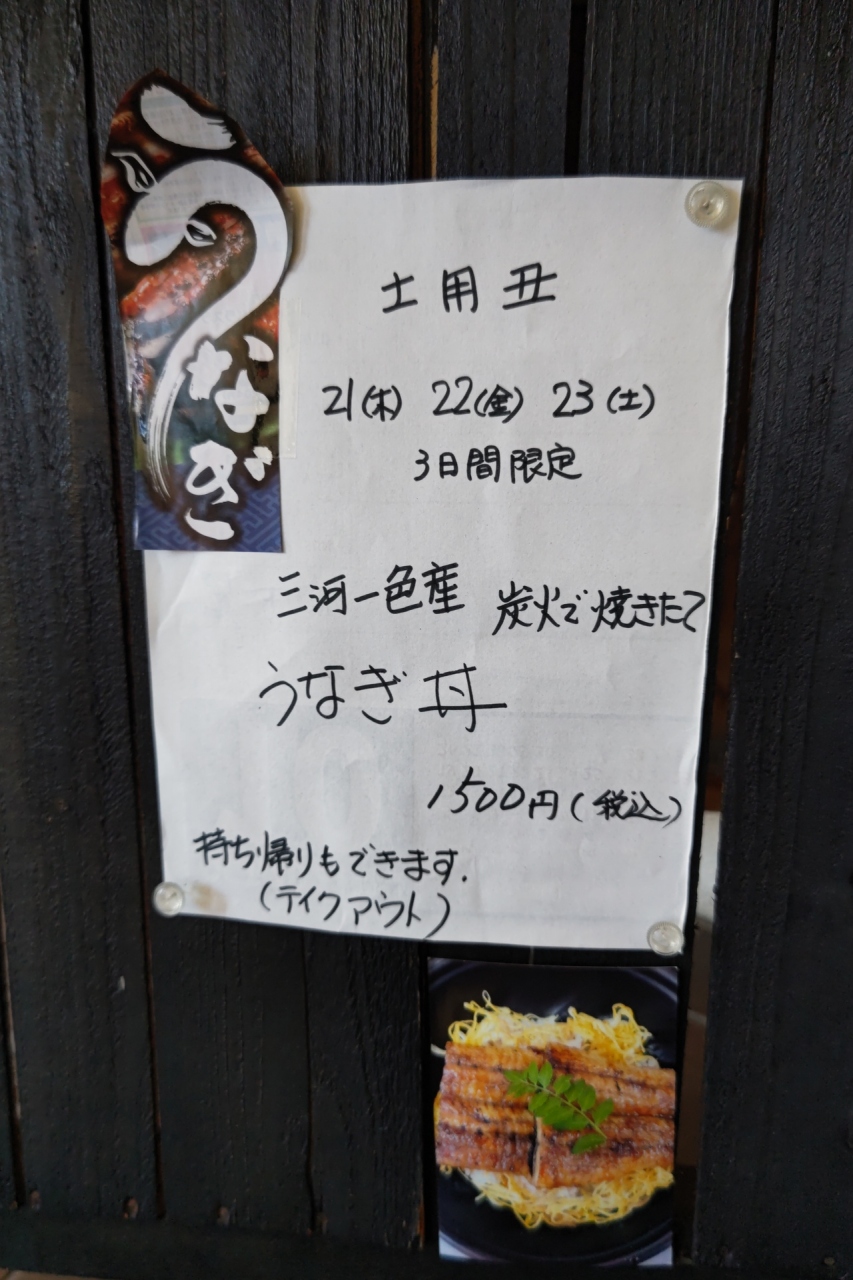 うなぎ
土用丑
21(木) 22(金) 23(土)
3日間限定
三河一色産 炭火で焼きたて
うなぎ丼
1500円(税込)
持ち帰りもできます.
(テイクアウト)